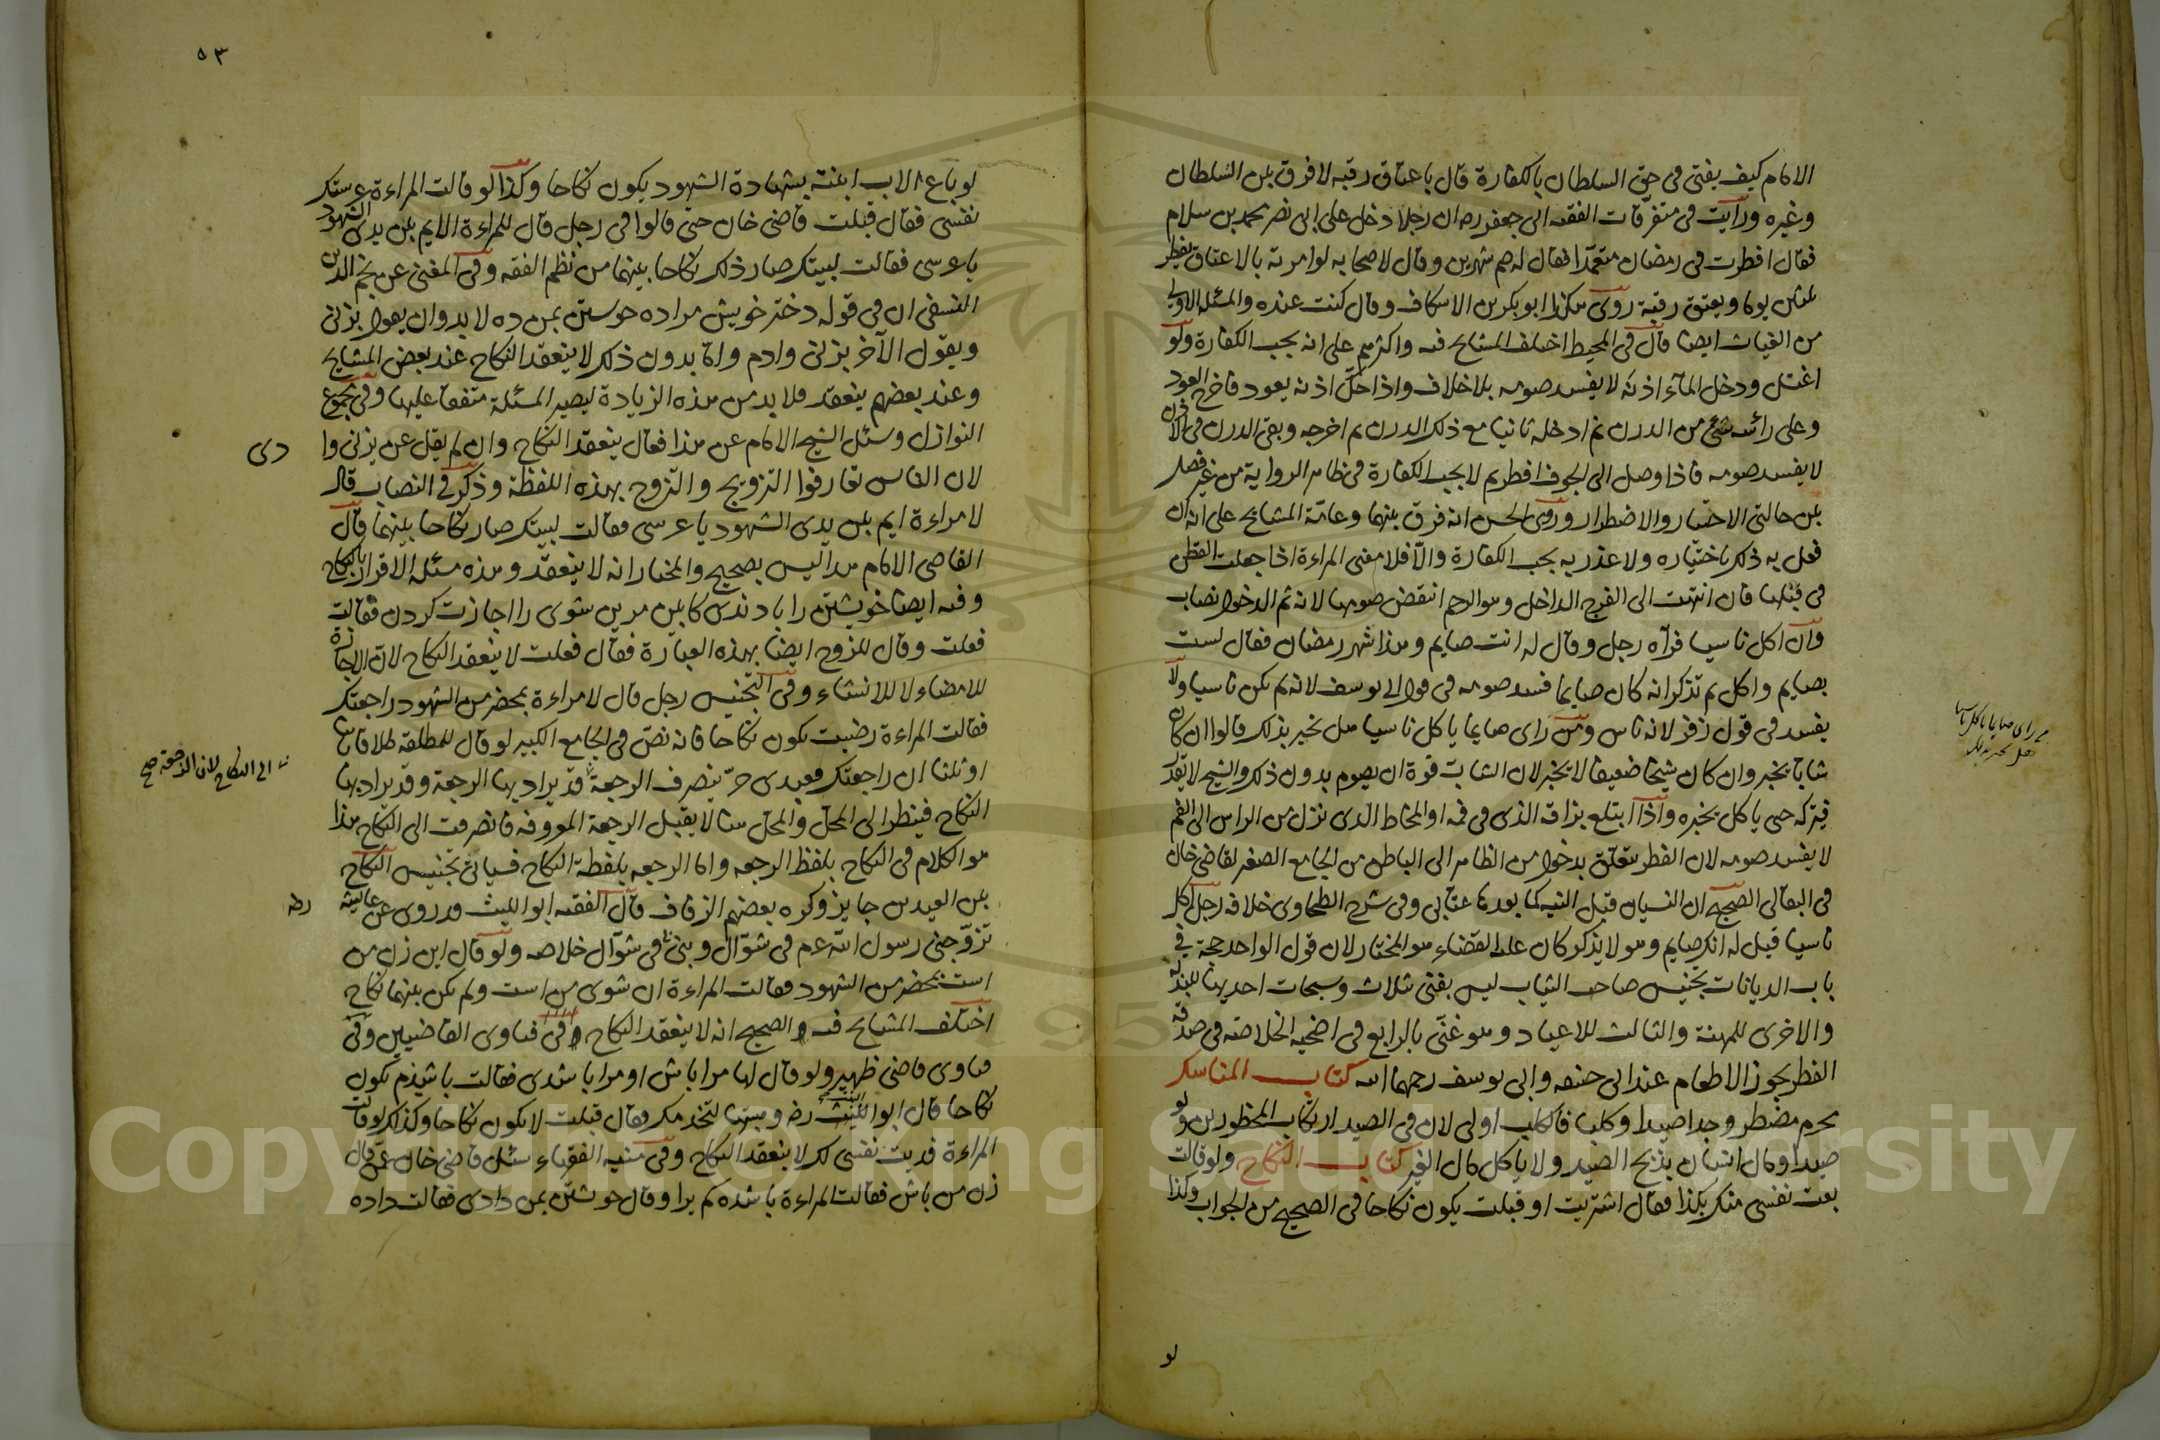 الامام كيف يفتى فى حق السلطان بالكفارة قال باعتاق رقبة لا فرق بين السلطان
وغيره ورأيت فى متفرقات الفقيه ابى جعفر ره ان رجلا دخل على ابى نصر محمد بن سلام
فقال افطرت فى رمضان متعمدا فقال له صم شهرين وقال لاصحابه لو امرته بالاعتاق يفطر
ثلثين يوما ويعتق رقبة روى هكذا ابو بكر بن الاسكاف وقال كنت عنده والمسئلة الاولى
من الغياث ايضا قال فى المحيط اختلف المشايخ فيه واكثرهم على انه يجب الكفارة ولو
اغتسل ودخل المآء اذنه لا يفسد صومه بلا خلاف واذا حك اذنه بعود فاخرج العود
وعلى رأسه شئ من الدرن ثم ادخله ثانيا مع ذلك الدرن ثم اخرجه وبقى الدرن فى الاذن
لا يفسد صومه فاذا وصل الى الجوف افطر ثم لا يجب الكفارة فى ظاهر الرواية من غير فصل
بين حالتى الاختيار والاضطرار وروى الحسن انه فرق بينهما وعامة المشايخ على انه ان
فعل به ذلك باختياره ولا عذر به يجب الكفارة والا فلا مغنى المراءة اذا جعلت القطن
فى قبلها فان انتهت الى الفرج الداخل وهو الرحم انتقض صومها لانه تم الدخول نصاب
وان اكل ناسيا فرآه رجل وقال له انت صايم وهذا شهر رمضان فقال لست
بصايم واكل ثم تذكر انه كان صايما فسد صومه فى قول ابى يوسف لانه لم يكن ناسيا ولا
يفسد فى قول زفر لانه ناس ومن راى صايما ياكل ناسيا هل يخبر بذلك قالوا ان كان
شابا يخبر وان كان شيخا ضعيفا لا يخبر لان الشاب قوة ان يصوم بدون ذلك والشيخ لا يقدر
فيتركه حتى ياكل يخبره واذا ابتلع بزاقه الذى فى فمه او المخاط الذى نزل من الراس الى الفم
لا يفسد صومه لان الفطر يتعلق بدخول من الظاهر الى الباطن من الجامع الصغير لقاضى خان
فى البقالى الصحيح ان النسيان قبل النية كما بعدها عتابى وفى شرح الطحاوى خلافه رجل اكل
ناسيا فقيل له انك صايم وهو لا يذكر كان عليه القضاء هو المختار لان قول الواحد حجة فى
باب الديانات تجنيس صاحب الثياب ليس بغنى ثلاث وسبحات احديها للبذلة
والاخرى للمهنة والثالث للاعياد وهو غنى بالرابع فى اضحية الخلاصة فى صدقة
الفطر يجوز الاطعام عند ابى حنيفة وابى يوسف رحمهما الله كتاب المناسك
محرم مضطر وجد صيدا وكلبا فالكلب اولى لان فى الصيد ارتكاب المحظورين ولو
صيدا ومال انسان يذبح الصيد ولا ياكل مال الغير كتاب النكاح ولو قالت
بعت نفسى منك بكذا فقال اشتريت او قبلت يكون نكاحا فى الصحيح من الجواب وكذا
لو
راى صايما ياكل ناسيا
هل يخبر بذلك
٥٣
لو باع الاب ابنته بشهادة الشهود يكون نكاحا وكذا لو قالت المراءة عرستك
نفسى فقال قبلت قاضى خان حتى قالوا فى رجل قال للمراءة الايم بين يدى الشهود
يا عرسى فقالت لبيك صار ذلك نكاحا بينهما من نظم الفقه وفى المغنى عن نجم الدين
النسفى ان فى قوله دختر خويش مراده خويشتن بمن ده لا بد وان يقول بزنى
ويقول الآخر بزنى دادم واما بدون ذلك لا ينعقد النكاح عند بعض المشايخ
وعند بعضهم ينعقد فلا بد من هذه الزيادة ليصير المسئلة متفقا عليها وفى مجموع
النوازل وسئل الشيخ الامام عن هذا فقال ينعقد النكاح وان لم يقل عن بزنى وا
لان الناس تعارفوا التزويج والتزوج بهذه اللفظة وذكر فى النصاب قال
لامراءة ايم بين يدى الشهود يا عرسى فقالت لبيك صار نكاحا بينهما قال
القاضى الامام هذا ليس بصحيح والمختار انه لا ينعقد وهذه مسئلة الاقرار بالنكاح
وفيه ايضا خويشتن را باد ندى كابين مر بن شوى را اجازت كردن فقالت
فعلت وقال للزوج ايضا بهذه العبارة فقال فعلت لا ينعقد النكاح لان الاجازة
للامضاء لا للانشاء وفى التجنيس رجل قال لامراءة بمحضر من الشهود راجعتك
فقالت المراءة رضيت يكون نكاحا فانه نص فى الجامع الكبير لو قال للمطلقة طلاقا باينا
او ثلثا ان راجعتك فعبدى حر ينصرف الرجعة قد يراد بها الرجعة وقد يراد بها
النكاح فينظر الى المحل والمحل هنا لا يقبل الرجعة المعروفة فانصرفت الى النكاح هذا
هو الكلام فى النكاح بلفظ الرجعه واما الرجعه بلفظة النكاح فسيأتى تجنيس النكاح
بين العيدين جايز وكره بعضهم الزفاف قال الفقيه ابو الليث وروى عن عايشة
تزوجنى رسول الله عم فى شوال وبنى فى شوال خلاصه ولو قال اين زن من
است بمحضر من الشهود فقالت المراءة ان شوى من است ولم يكن بينهما نكاح
اختلف المشايخ فيه والصحيح انه لا ينعقد النكاح وفى فتاوى القاضيين وفى
فتاوى قاضى ظهير ولو قال لها مرا باش او مرا باشدى فقالت باشيذم يكون
نكاحا قال ابو الليث رضه وهبتها لتخدمك فقال قبلت لا يكون نكاحا وكذلك لو قالت
المراءة فديت نفسى لك لا ينعقد النكاح وفى منية الفقهاء سئل قاضى خان عن قال
زن من باش فقالت المراءة باشده كم برا وقال خويشتن بمن دادى فقالت داده
دى
الى النكاح لان الرجعة صح
رضه